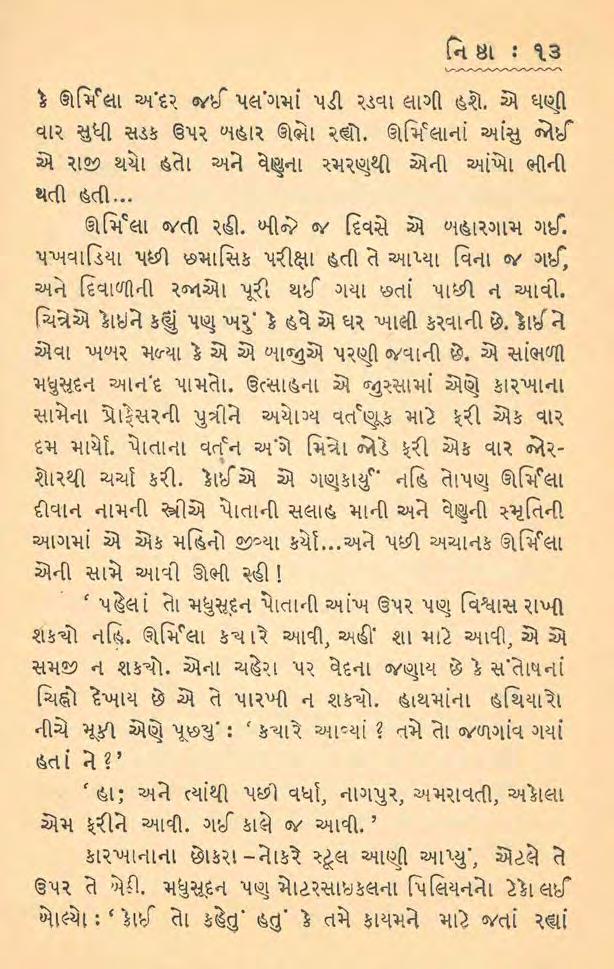 નિષ્ઠા : ૧૩
કે ઊર્મિલા અંદર જઈ પલંગમાં પડી રડવા લાગી હશે. એ ઘણી
વાર સુધી સડક ઉપર બહાર ઊભો રહ્યો. ઊર્મિલાનાં આંસુ જોઈ
એ રાજી થયો હતો અને વેણુના સ્મરણથી એની આંખો ભીની
થતી હતી...
ઊર્મિલા જતી રહી. બીજે જ દિવસે એ બહારગામ ગઈ.
પખવાડિયા પછી છમાસિક પરીક્ષા હતી તે આપ્યા વિના જ ગઈ,
અને દિવાળીની રજાઓ પૂરી થઈ ગયા છતાં પાછી ન આવી.
ચિત્રેએ કોઇને કહ્યું પણ ખરું કે હવે એ ઘર ખાલી કરવાની છે. કોઈને
એવા ખબર મળ્યા કે એ એ બાજુએ પરણી જવાની છે. એ સાંભળી
મધુસૂદન આનંદ પામતો. ઉત્સાહના એ જુસ્સામાં એણે કારખાના
સામેના પ્રોફેસરની પુત્રીને અયોગ્ય વર્તણૂક માટે ફરી એક વાર
દમ માર્યો. પોતાના વર્તન અંગે મિત્રો જોડે ફરી એક વાર જોર-
શોરથી ચર્ચા કરી. કોઈએ એ ગણકાર્યું નહિ તોપણ ઊર્મિલા
દીવાન નામની સ્ત્રીએ પોતાની સલાહ માની અને વેણુની સ્મૃતિની
આગમાં એ એક મહિનો જીવ્યા કર્યો...અને પછી અચાનક ઊર્મિલા
એની સામે આવી ઊભી રહી !
‘ પહેલાં તો મધુસૂદન પોતાની આંખ ઉપર પણ વિશ્વાસ રાખી
શકયો નહિ. ઊર્મિલા કયારે આવી, અહીં શા માટે આવી, એ એ
સમજી ન શકયો. એના ચહેરા પર વેદના જણાય છે કે સંતોષનાં
ચિહ્નો દેખાય છે એ તે પારખી ન શકયો. હાથમાંના હથિયારો
નીચે મૂકી એણે પૂછયું : ‘ કયારે આવ્યાં ? તમે તો જળગાંવ ગયાં
હતાં ને ?’
‘ હા; અને ત્યાંથી પછી વર્ધા, નાગપુર, અમરાવતી, અકોલા
એમ ફરીને આવી. ગઈ કાલે જ આવી. ’
કારખાનાના છોકરા – નોકરે સ્ટૂલ આણી આપ્યું, એટલે તે
ઉપર તે બેઠી. મધુસૂદન પણ મોટરસાઇકલના પિલિયનનો ટેકો લઈ
બોલ્યો : ‘ કોઈ તો કહેતું હતું કે તમે કાયમને માટે જતાં રહ્યાં